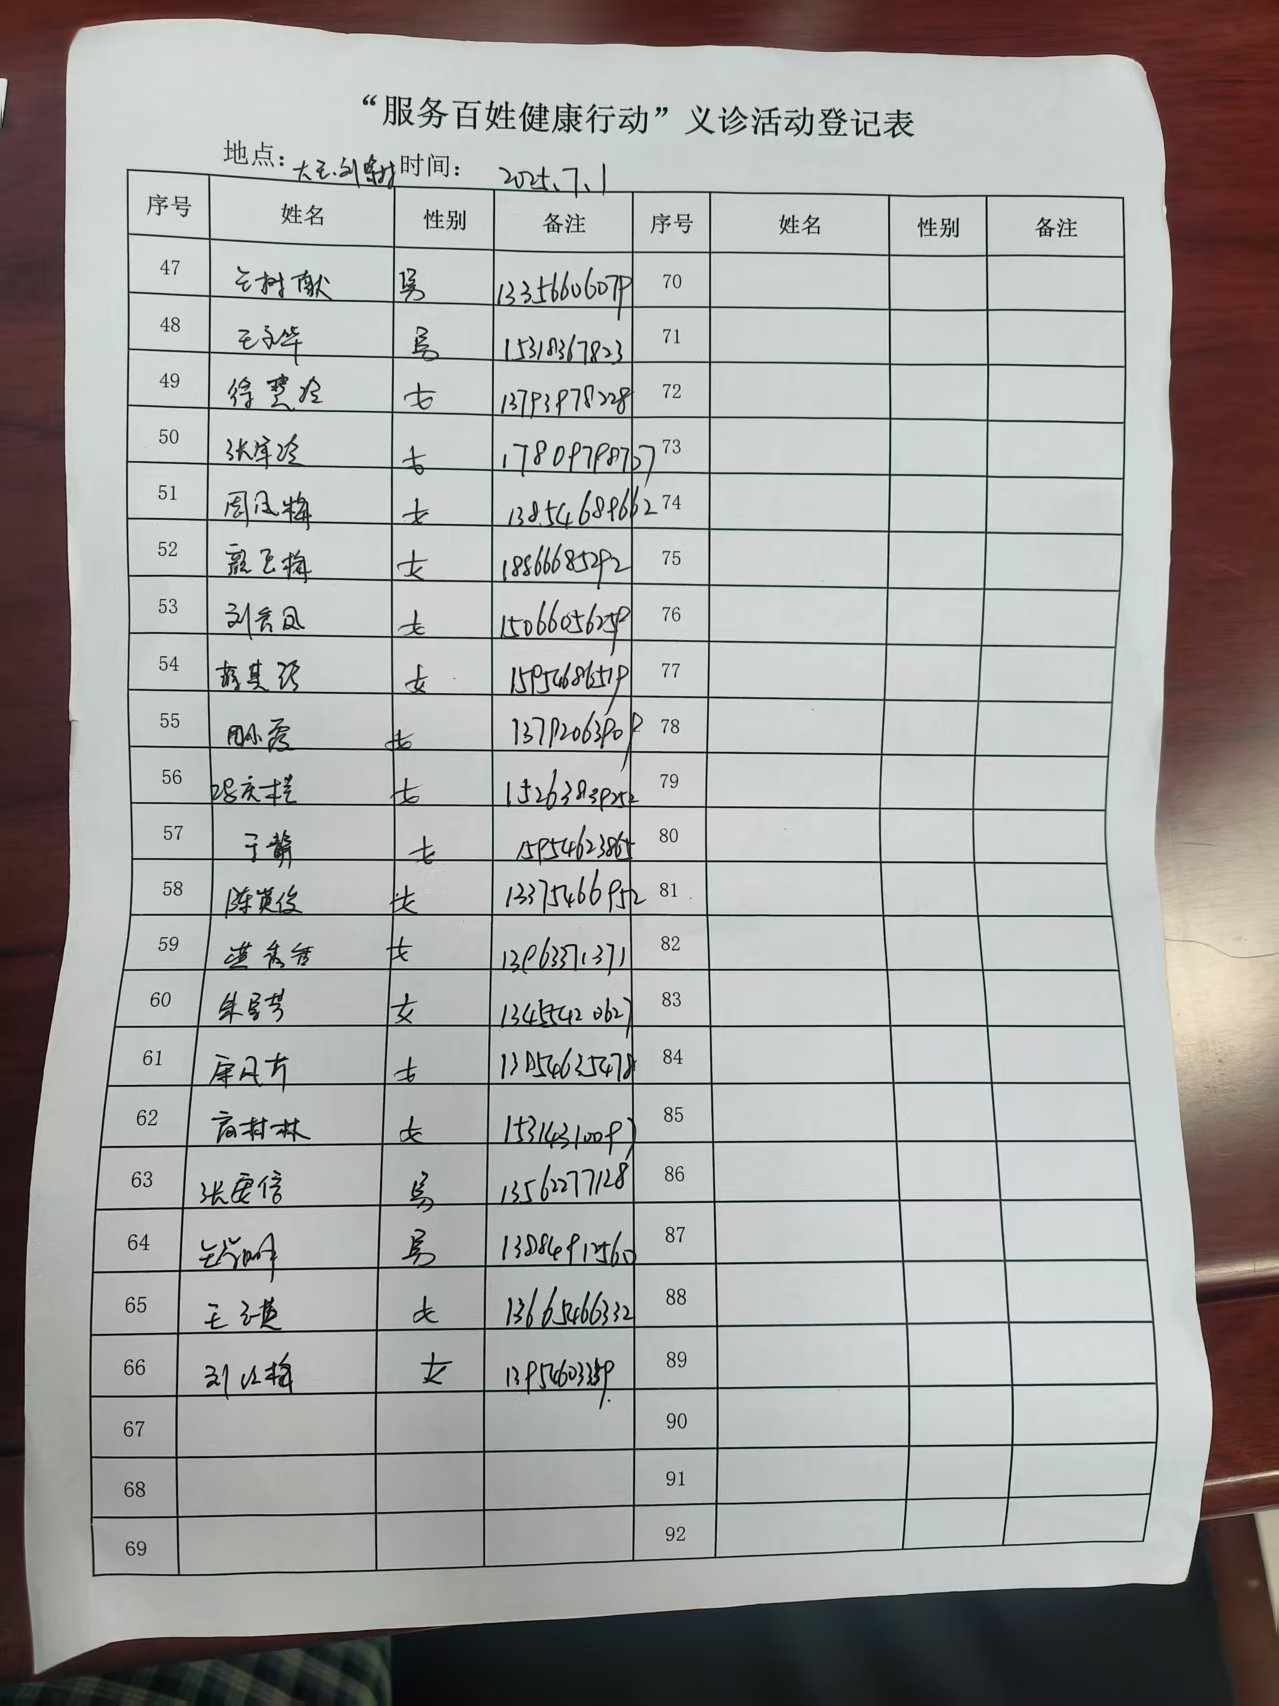 “服务百姓健康行动”义诊活动登记表
地点：大王.刘 时间： 2025.7.1
序号 姓名 性别 备注 序号 姓名 性别 备注
47 王树献 男 13356606079 70
48 王永华 男 15318367823 71
49 徐慧玲 女 13793978228 72
50 张军玲 女 17809798757 73
51 周凤梅 女 13854689662 74
52 郭玉梅 女 18866685292 75
53 刘秀凤 女 15066056259 76
54 女 15954686519 77
55 周小霞 女 13792063909 78
56 女 15263839252 79
57 于静 女 15954623865 80
58 陈英俊 女 13375466952 81
59 女 13963371371 82
60 女 13455420627 83
61 女 13854635478 84
62 女 15314310097 85
63 张 信 男 13562277128 86
64 男 13884912560 87
65 王 英 女 13665466332 88
66 刘 梅 女 13954603359 89
67 90
68 91
69 92